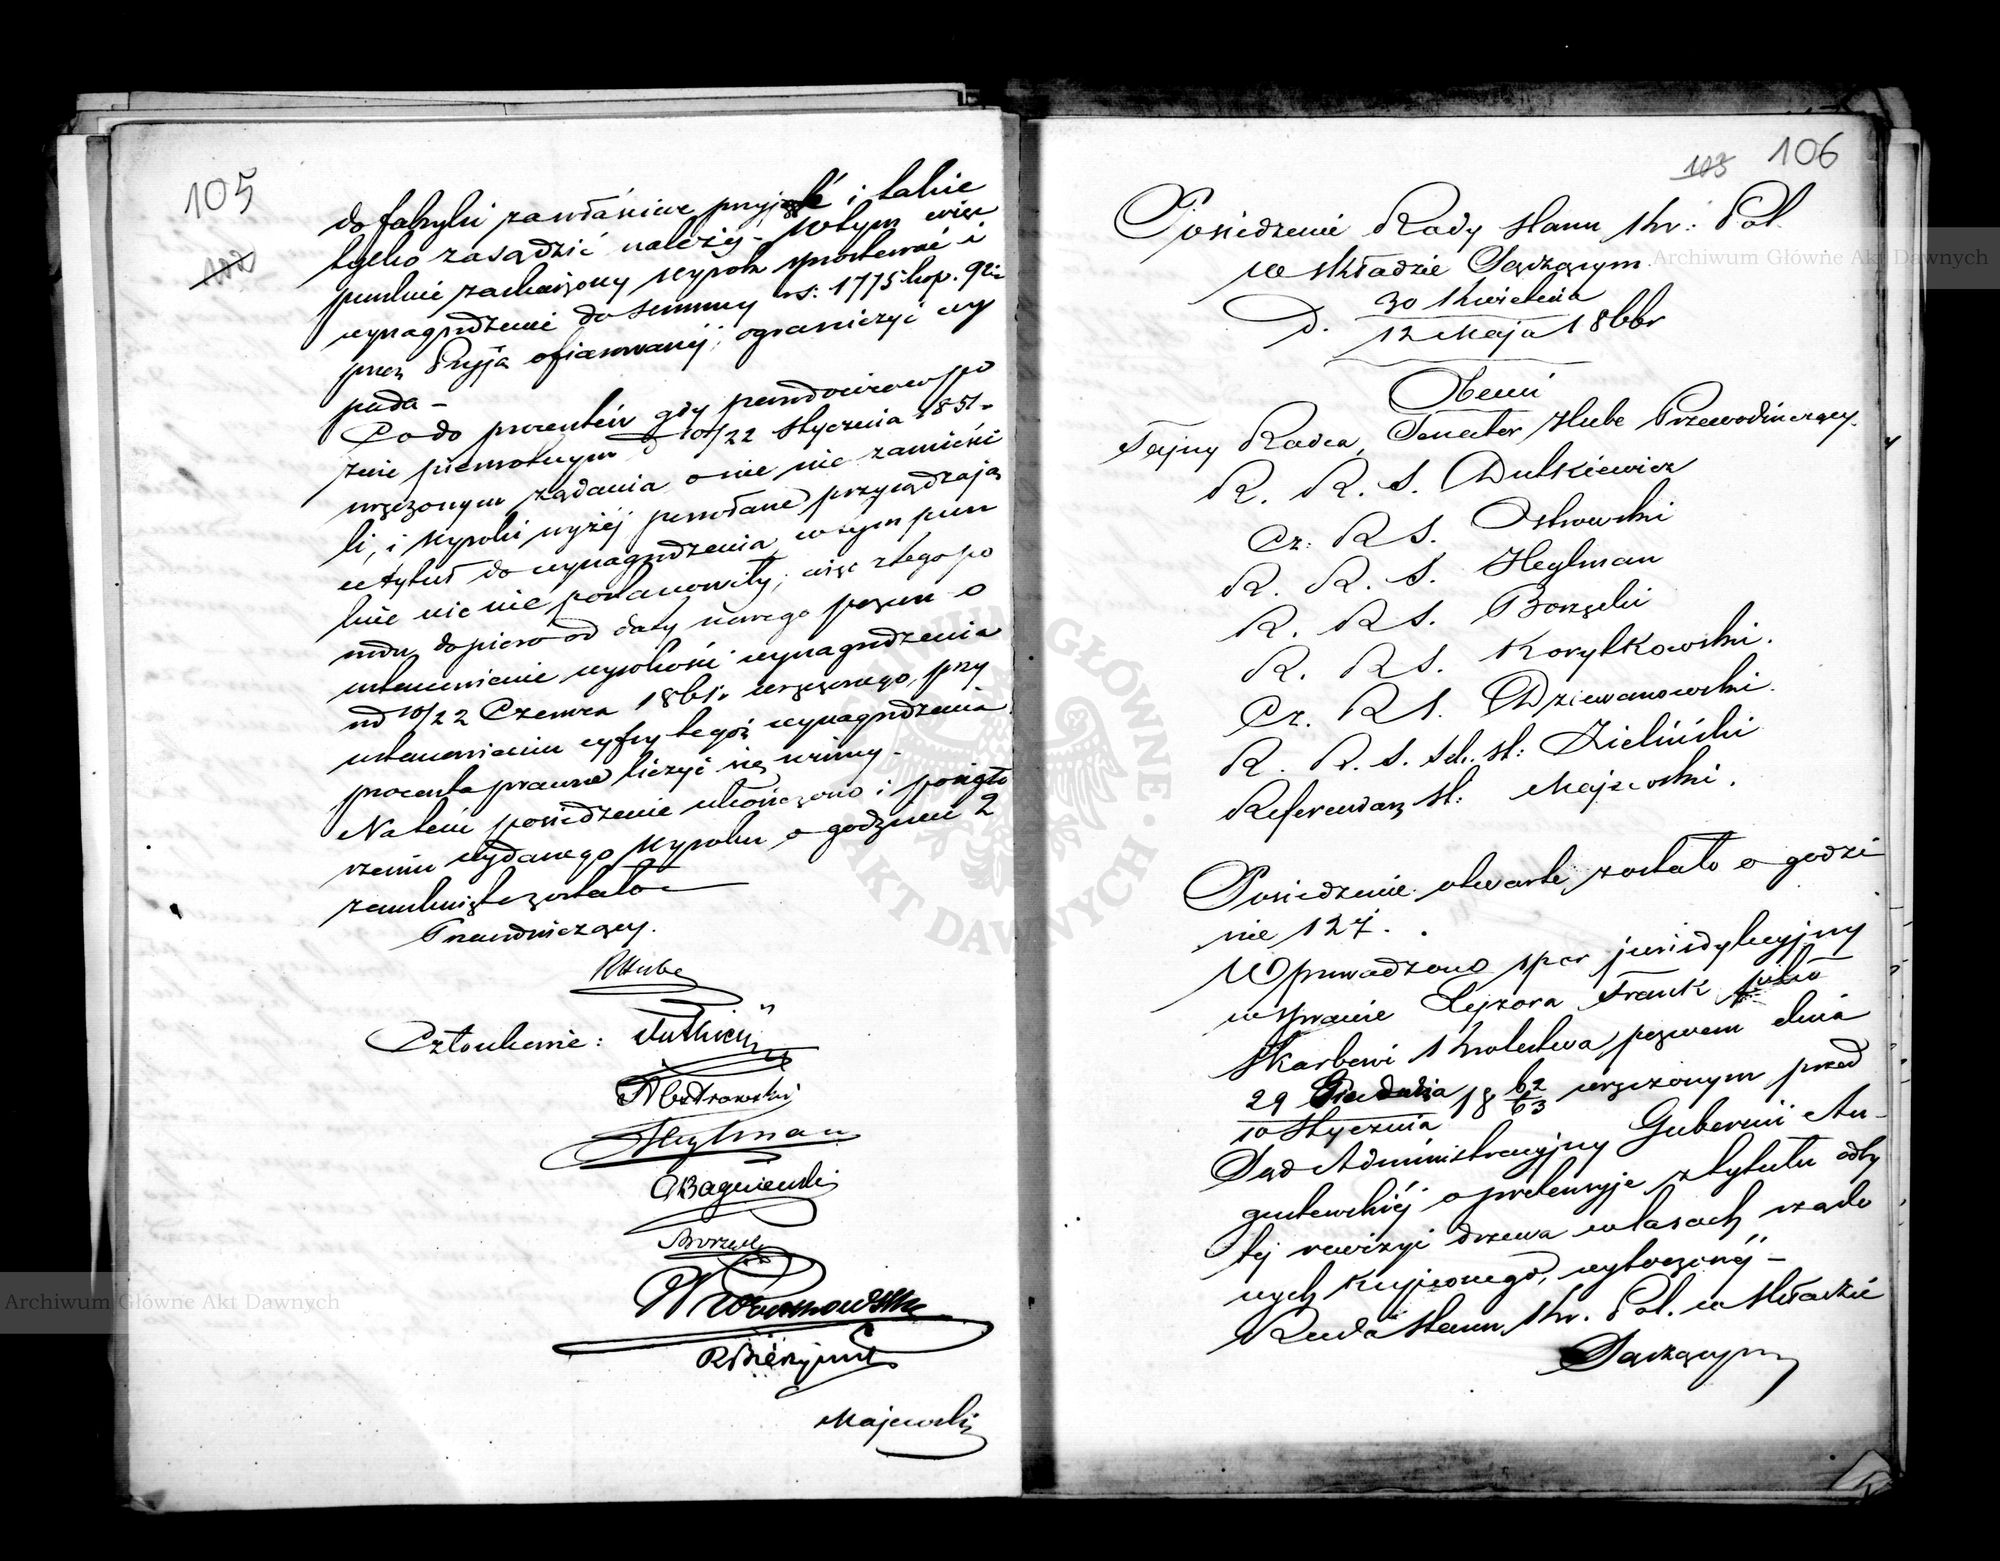 105
102
do fabryki zawłaściwe przyjąć i takie
tylko zasądzić należy - W tym więc
punkcie zaskarżony wyrok sprostować i
wynagrodzenie do summy rs: 1775 kop. 92
przez Pruja ofiarowanéj, ograniczyć wy
pada -
Co do procentów gdy powodowie w po
zwie pierwotnym d 10/22 Stycznia 1851 r
wręczonym żądania o nie nie zamieści
li, i wyroki wyżéj powołane przysądzają
c tytuł do wynagrodzenia, w tym pun
kcie nic nie postanowiły, więc z tego po
wodu dopiero od daty nowego pozwu o
ustanowienie wysokości wynagrodzenia
od 10/22 Czerwca 1861 r. wręczonego, przy
ustanowieniu cyfry tegoż wynagrodzenia
procenta prawne liczyć się winny -
Na tém posiedzenie ukończono i po ogło
szeniu wydanego wyroku o godzinie 2
zamknięte zostało
Przewodniczący.
RHube
Członkowie: Dutkiewicz
A Ostrowski
Heylman
Bagniewski
Borzęcki
Majewski
103 106
Posiedzenie Rady Stanu Kr: Pol.
w składzie Sądzącym
d. 30 Kwietnia
12 Maja 1866 r
Obecni
Tajny Radca, Senator Hube Przewodniczący.
R. R. S. Dutkiewicz
Cz: R S. Ostrowski
R. R. S. Heylman
R. R S. Borzęcki
R. R S. Korytkowski.
Cz. R S. Dziewanowski.
R. R. S. Sek. st: Zieliński
Referendarz St: Majewski.
Posiedzenie otwarte zostało o godzi
nie 12 1/4.
Wprowadzono spór jurisdykcyjny
w sprawie Lejzora Frank pko
Skarbowi Królestwa, pozwem dnia
29 Grudnia 18 62 wręczonym przed
10 Stycznia 63
Sąd Administracyjny Gubernii Au-
gustowskiéj o pretensyje z tytułu odby
tej rewizyi drzewa w lasach rządo
wych kupionego, wytoczonéj -
Rada Stanu Kr. Pol. w składzie
Sądzącym
Archiwum Główne Akt Dawnych
Archiwum Główne Akt Dawnych
ARCHIWUM GŁÓWNE AKT DAWNYCH